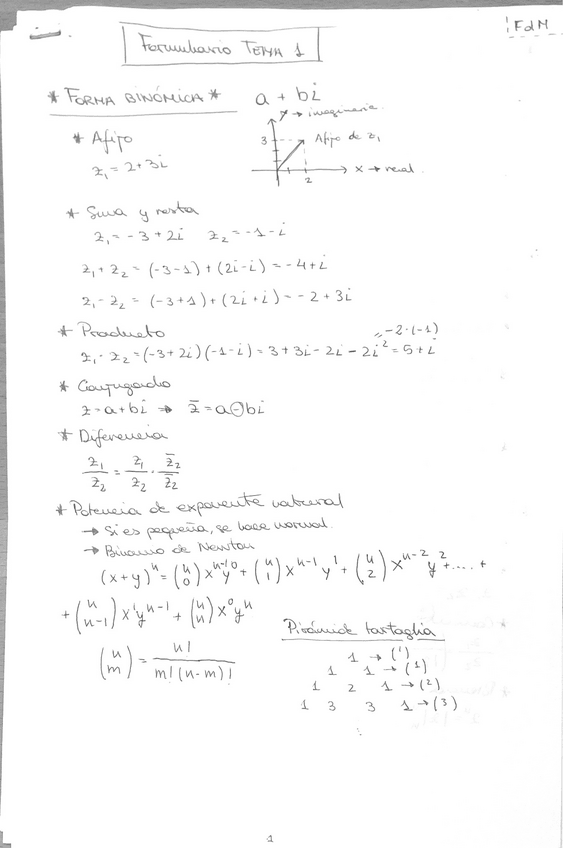 FdM
Formulario TEMA 1
* FORMA BINÓMICA * a + bi
y → imaginario
* Afijo
3 Afijo de z₁
z₁ = 2+3i
x → real
2
* Suma y resta
z₁ = -3 + 2i z₂ = -1 - i
z₁ + z₂ = (-3-1) + (2i-i) = -4+i
z₁ - z₂ = (-3+1) + (2i+i) = -2 + 3i
* Producto
= -2·(-1)
z₁ · z₂ = (-3+2i)(-1-i) = 3 + 3i - 2i - 2i² = 5 + i
* Conjugado
z = a+bi ⇒ z̄ = a⊖bi
* Diferencia
z₁/z₂ = z₁/z₂ · z̄₂/z̄₂
* Potencia de exponente natural
→ Si es pequeña, se hace normal.
→ Binomio de Newton
(x+y)ⁿ = (n 0) xⁿ⁻⁰y⁰ + (n 1) xⁿ⁻¹y¹ + (n 2) xⁿ⁻²y² + .... +
+ (n n-1) x¹yⁿ⁻¹ + (n n) x⁰yⁿ
Pirámide tartaglia
(n m) = n! / m!(n-m)!
1 → (¹)
1 1 → (1)
1 2 1 → (2)
1 3 3 1 → (3)
⋮
1